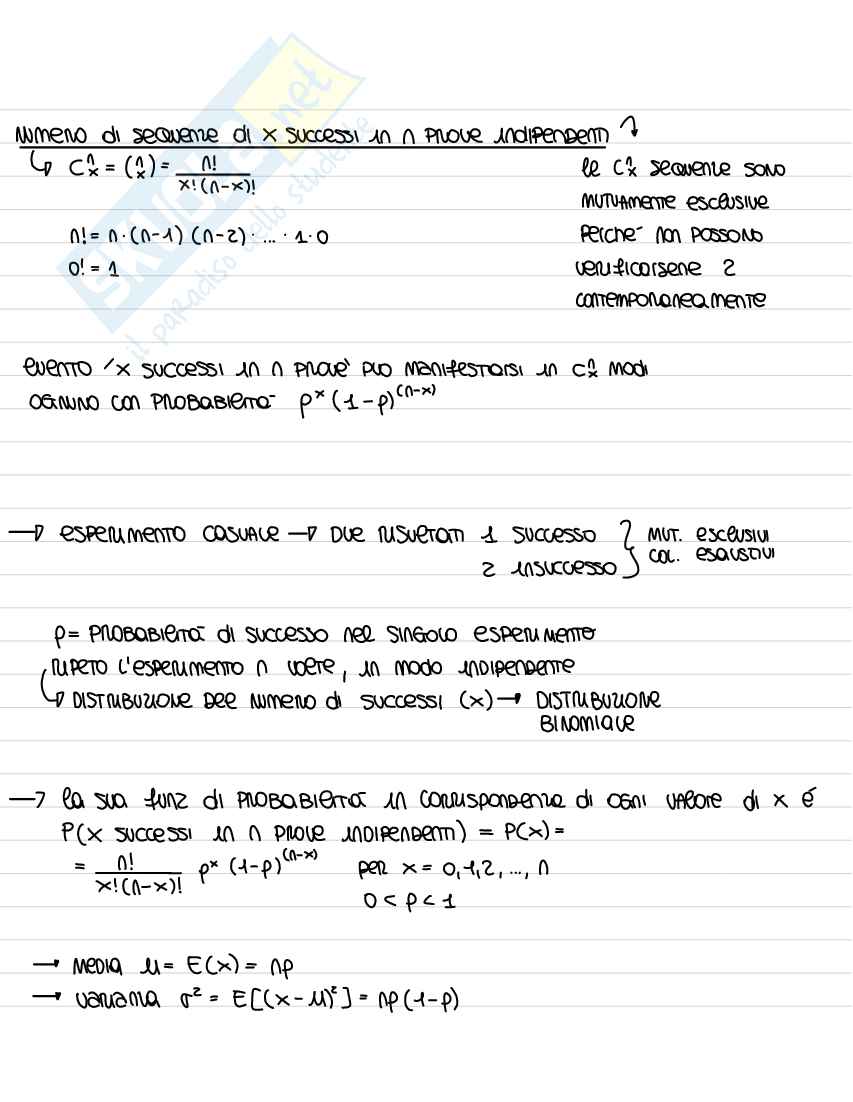 NUMERO di sequenze di x successi in n prove indipendenti
C^n_x = (n x) = n! / x!(n-x)!
le C^n_x sequenze sono
mutuamente esclusive
n! = n·(n-1) (n-2)· ... · 1·0
perché non possono
0! = 1
verificarsene 2
contemporaneamente
evento 'x successi in n prove' può manifestarsi in C^n_x modi
ognuno con probabilità p^x (1-p)^(n-x)
→ esperimento casuale → due risultati 1 successo } mut. esclusivi
2 insuccesso } col. esaustivi
p = probabilità di successo nel singolo esperimento
ripeto l'esperimento n volte, in modo indipendente
↳ distribuzione del numero di successi (x) → distribuzione
binomiale
→ la sua funz di probabilità in corrispondenza di ogni valore di x é
P(x successi in n prove indipendenti) = P(x) =
= n! / x!(n-x)! p^x (1-p)^(n-x) per x = 0,1,2, ..., n
0 < p < 1
→ media μ = E(x) = np
→ varianza σ² = E[(x-μ)²] = np(1-p)
SKUOLA.net
il paradiso dello studente